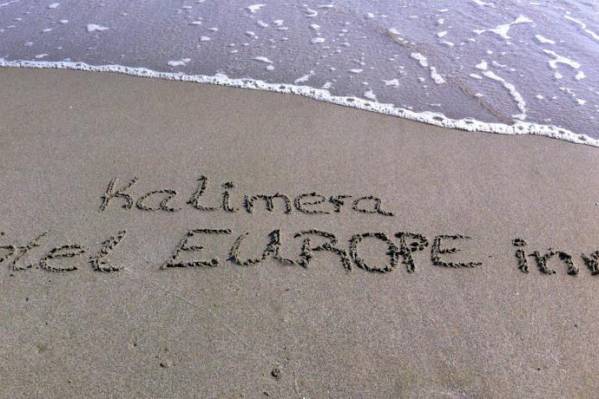 Kalimera
otel EUROPE inn